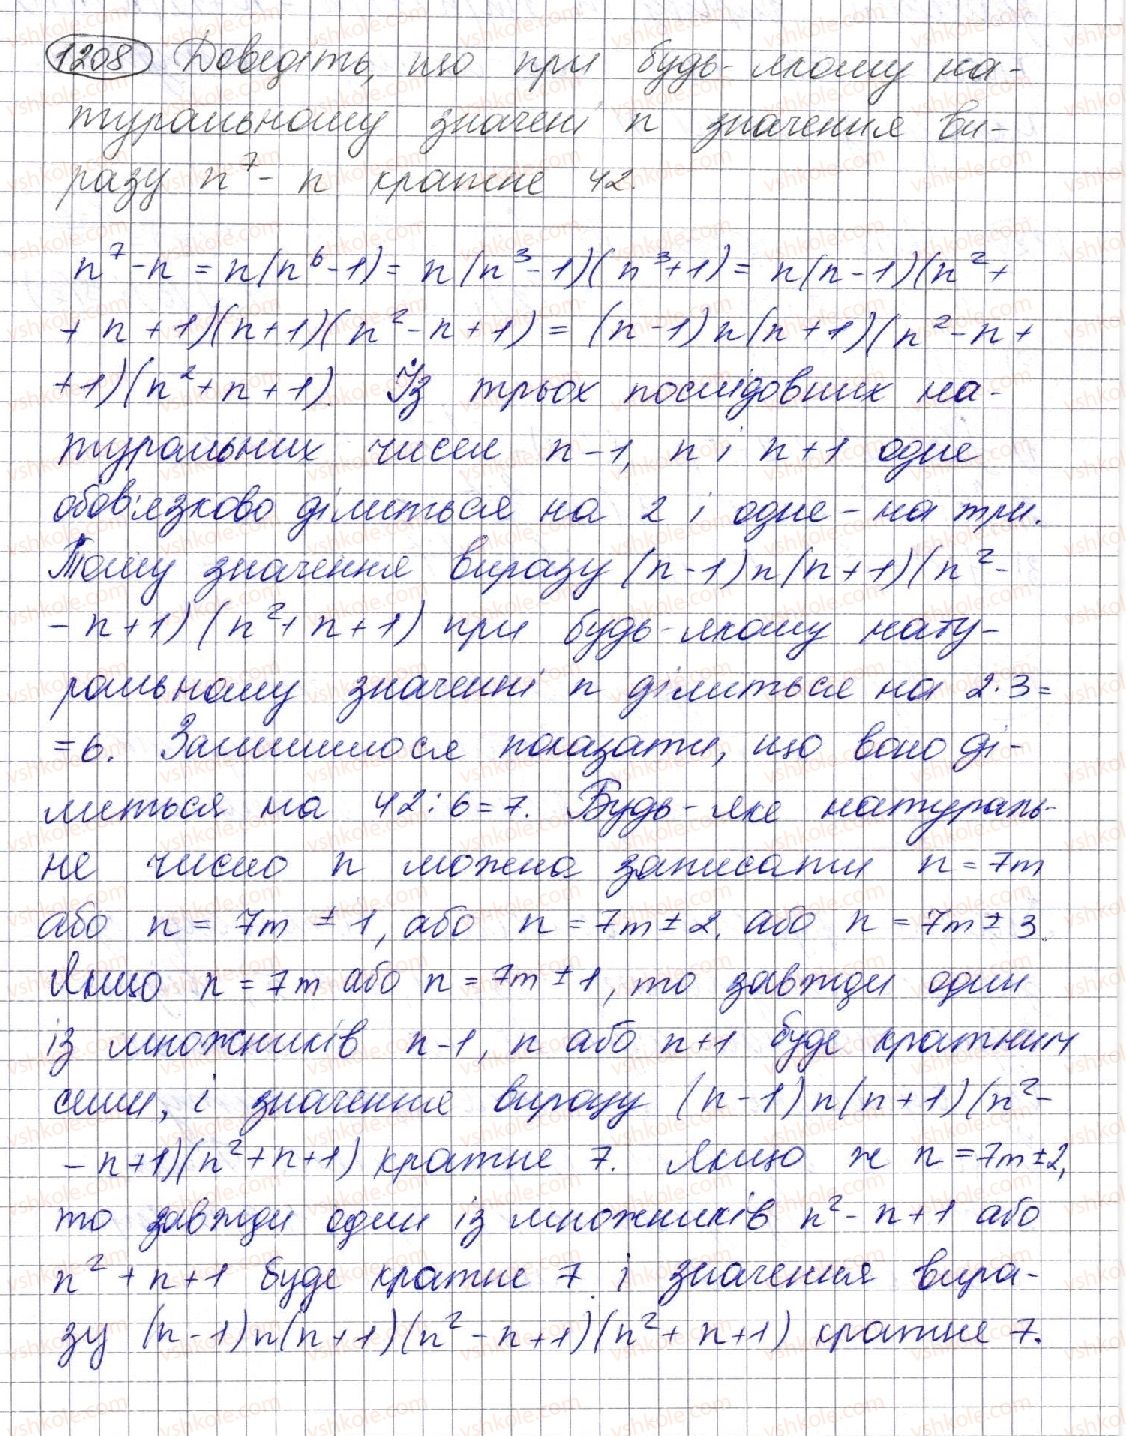 1208 Доведіть, що при будь-якому на-
туральному значені n значення ви-
разу n⁷ - n кратне 42.
n⁷ - n = n(n⁶ - 1) = n(n³ - 1)(n³ + 1) = n(n - 1)(n² +
+ n + 1)(n + 1)(n² - n + 1) = (n - 1)n(n + 1)(n² - n +
+ 1)(n² + n + 1). Із трьох послідовних на-
туральних чисел n - 1, n і n + 1 одне
обов'язково ділиться на 2 і одне - на три.
Тому значення виразу (n - 1)n(n + 1)(n² -
- n + 1)(n² + n + 1) при будь-якому нату-
ральному значенні n ділиться на 2 · 3 =
= 6. Залишилося показати, що воно ді-
литься на 42 : 6 = 7. Будь-яке натураль-
не число n можна записати n = 7m
або n = 7m ± 1, або n = 7m ± 2, або n = 7m ± 3.
Якщо n = 7m або n = 7m ± 1, то завжди один
із множників n - 1, n або n + 1 буде кратним
семи, і значення виразу (n - 1)n(n + 1)(n² -
- n + 1)(n² + n + 1) кратне 7. Якщо ж n = 7m ± 2,
то завжди один із множників n² - n + 1 або
n² + n + 1 буде кратне 7 і значення вира-
зу (n - 1)n(n + 1)(n² - n + 1)(n² + n + 1) кратне 7.